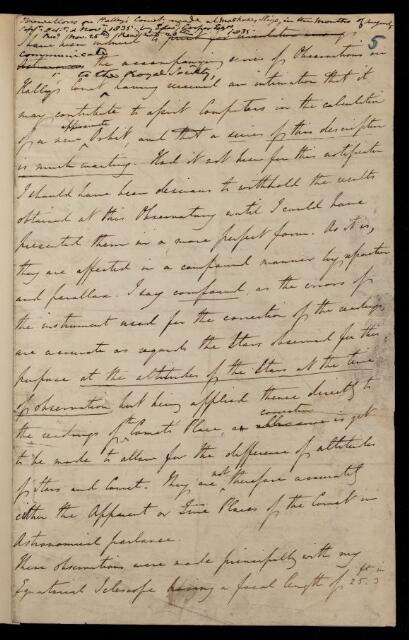 Observations on Halley's Comet made at Markree, Sligo, in the Months of August,
Sept. Oct. & Nov. 1835. by Edwd. Cooper Esqr.
Recd. Nov. 25th Read 1835. 5
I have been induced to
communicate the accompanying series of Observations on
to the Royal Society,
Halley's Comet having received an intimation that it
may contribute to assist Computers in the calculation
of a new apparent Orbit, and that a series of this description
is much wanting. Had it not been for this notification
I should have been desirous to withhold the results
obtained at this Observatory until I could have
presented them in a more perfect form. As it is,
they are affected in a compound manner by refraction
and parallax. I say compound, as the errors of
the instrument used for the correction of the readings
are accurate as regards the Stars observed for this
purpose at the altitudes of the Stars at the time
of observation but being applied thence directly to
the readings of the Comet's Place, a correction is yet
to be made to allow for the difference of altitudes
of Stars and Comet. They are not therefore accurately
either the Apparent or True Places of the Comet in
Astronomical parlance.
These observations were made principally with my
Equatorial Telescope having a focal length of 25 ft. 3 in